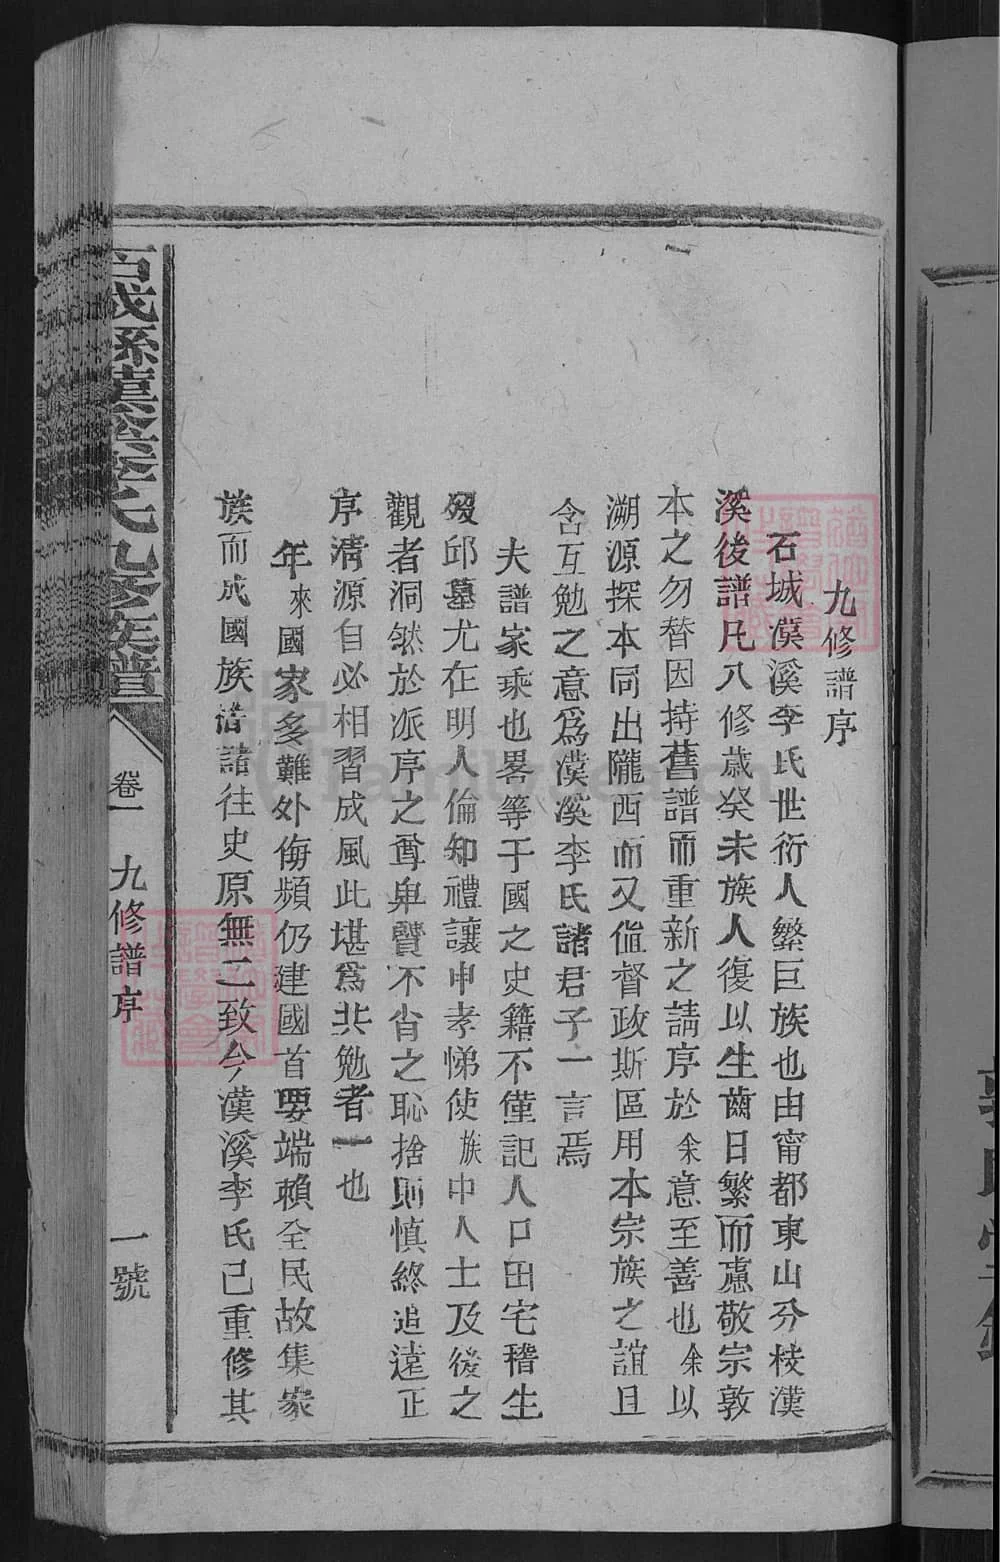 九修譜序
石城漢溪李氏世衍人繁巨族也由甯都東山分枝漢
溪後譜凡八修歲癸未族人復以生齒日繁而慮敬宗敦
本之勿替因持舊譜而重新之請序於余意至善也余以
溯源探本同出隴西而又值督政斯區用本宗族之誼且
含互勉之意爲漢溪李氏諸君子一言焉
夫譜家乘也畧等于國之史籍不僅記人口田宅稽生
歿邱墓尤在明人倫知禮讓申孝悌使族中人士及後之
觀者洞然於派序之尊卑賢不肖之恥捨則慎終追遠正
序清源自必相習成風此堪爲共勉者一也
年來國家多難外侮頻仍建國首要端賴全民故集家
族而成國族諸往史原無二致今漢溪李氏已重修其
石城縣漢溪李氏九修族譜
卷一
九修譜序
一號